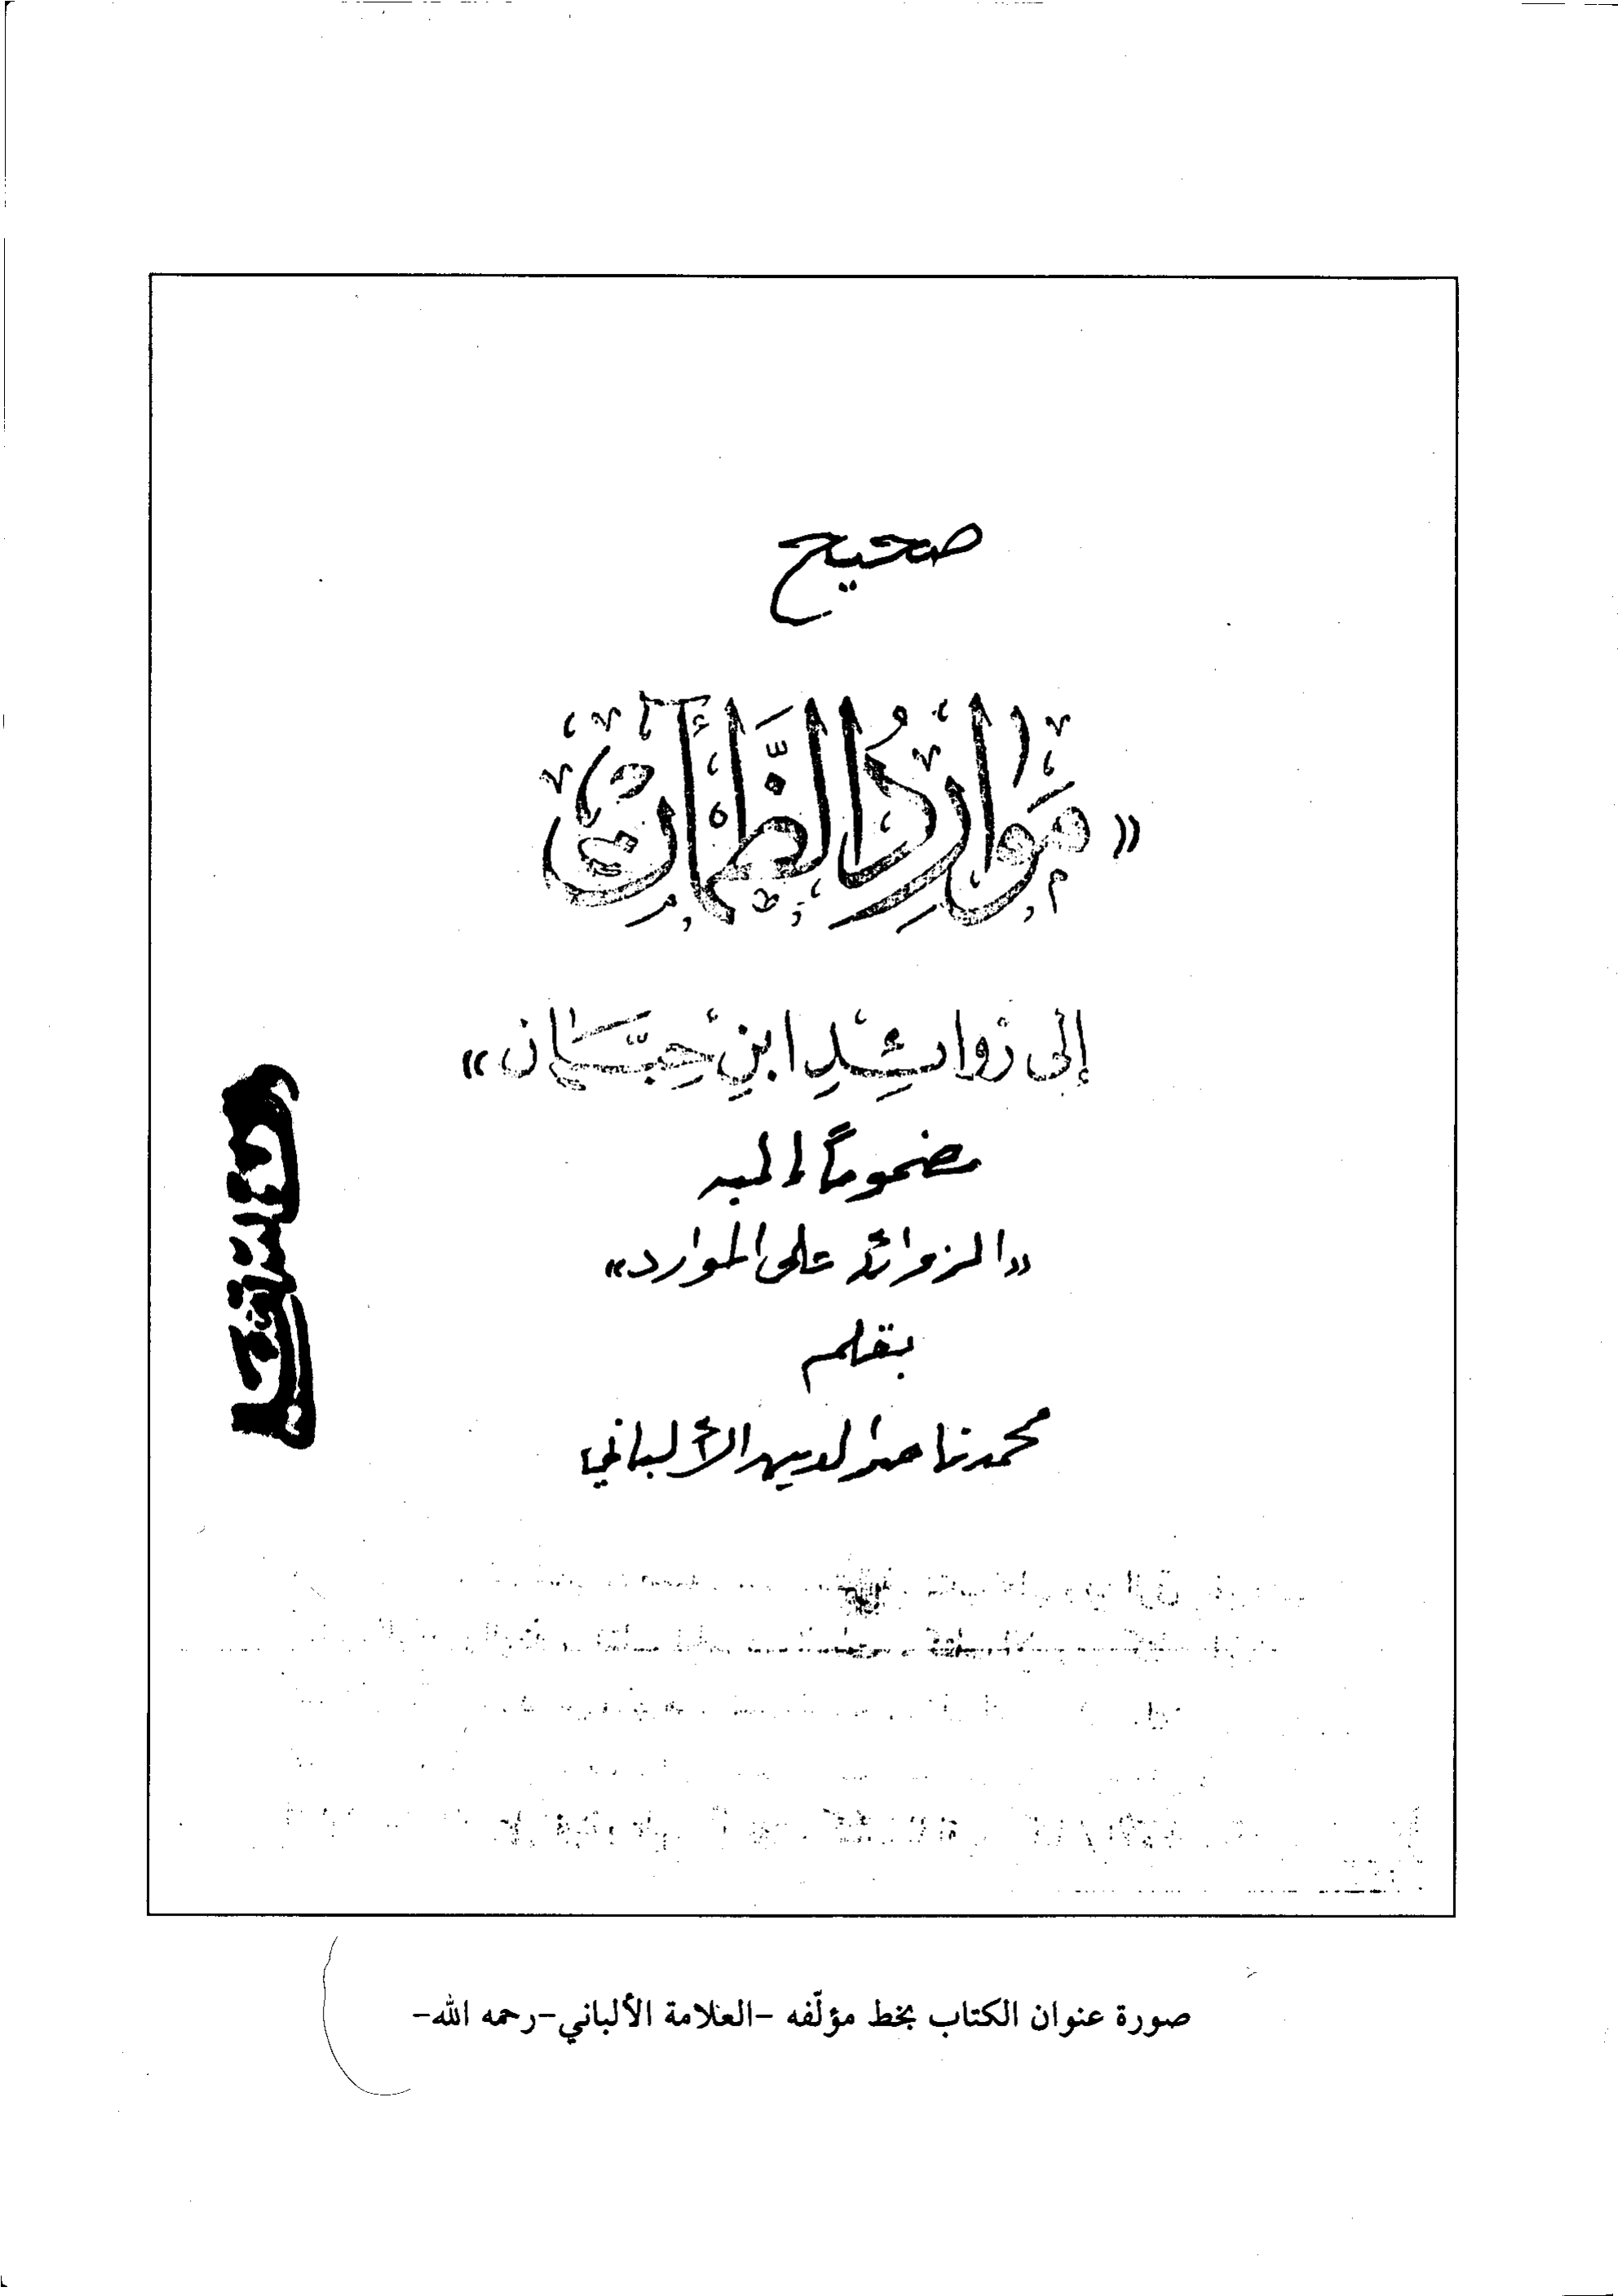 صحيح
«مَوَارِدُ الظَّمْآنِ
إلى زوائِدِ ابنِ حِبَّان»
مضموماً إليه
«الزوائد على الموارد»
بقلم
محمد ناصر الدين الألباني
صورة عنوان الكتاب بخط مؤلّفه -العلامة الألباني-رحمه الله-